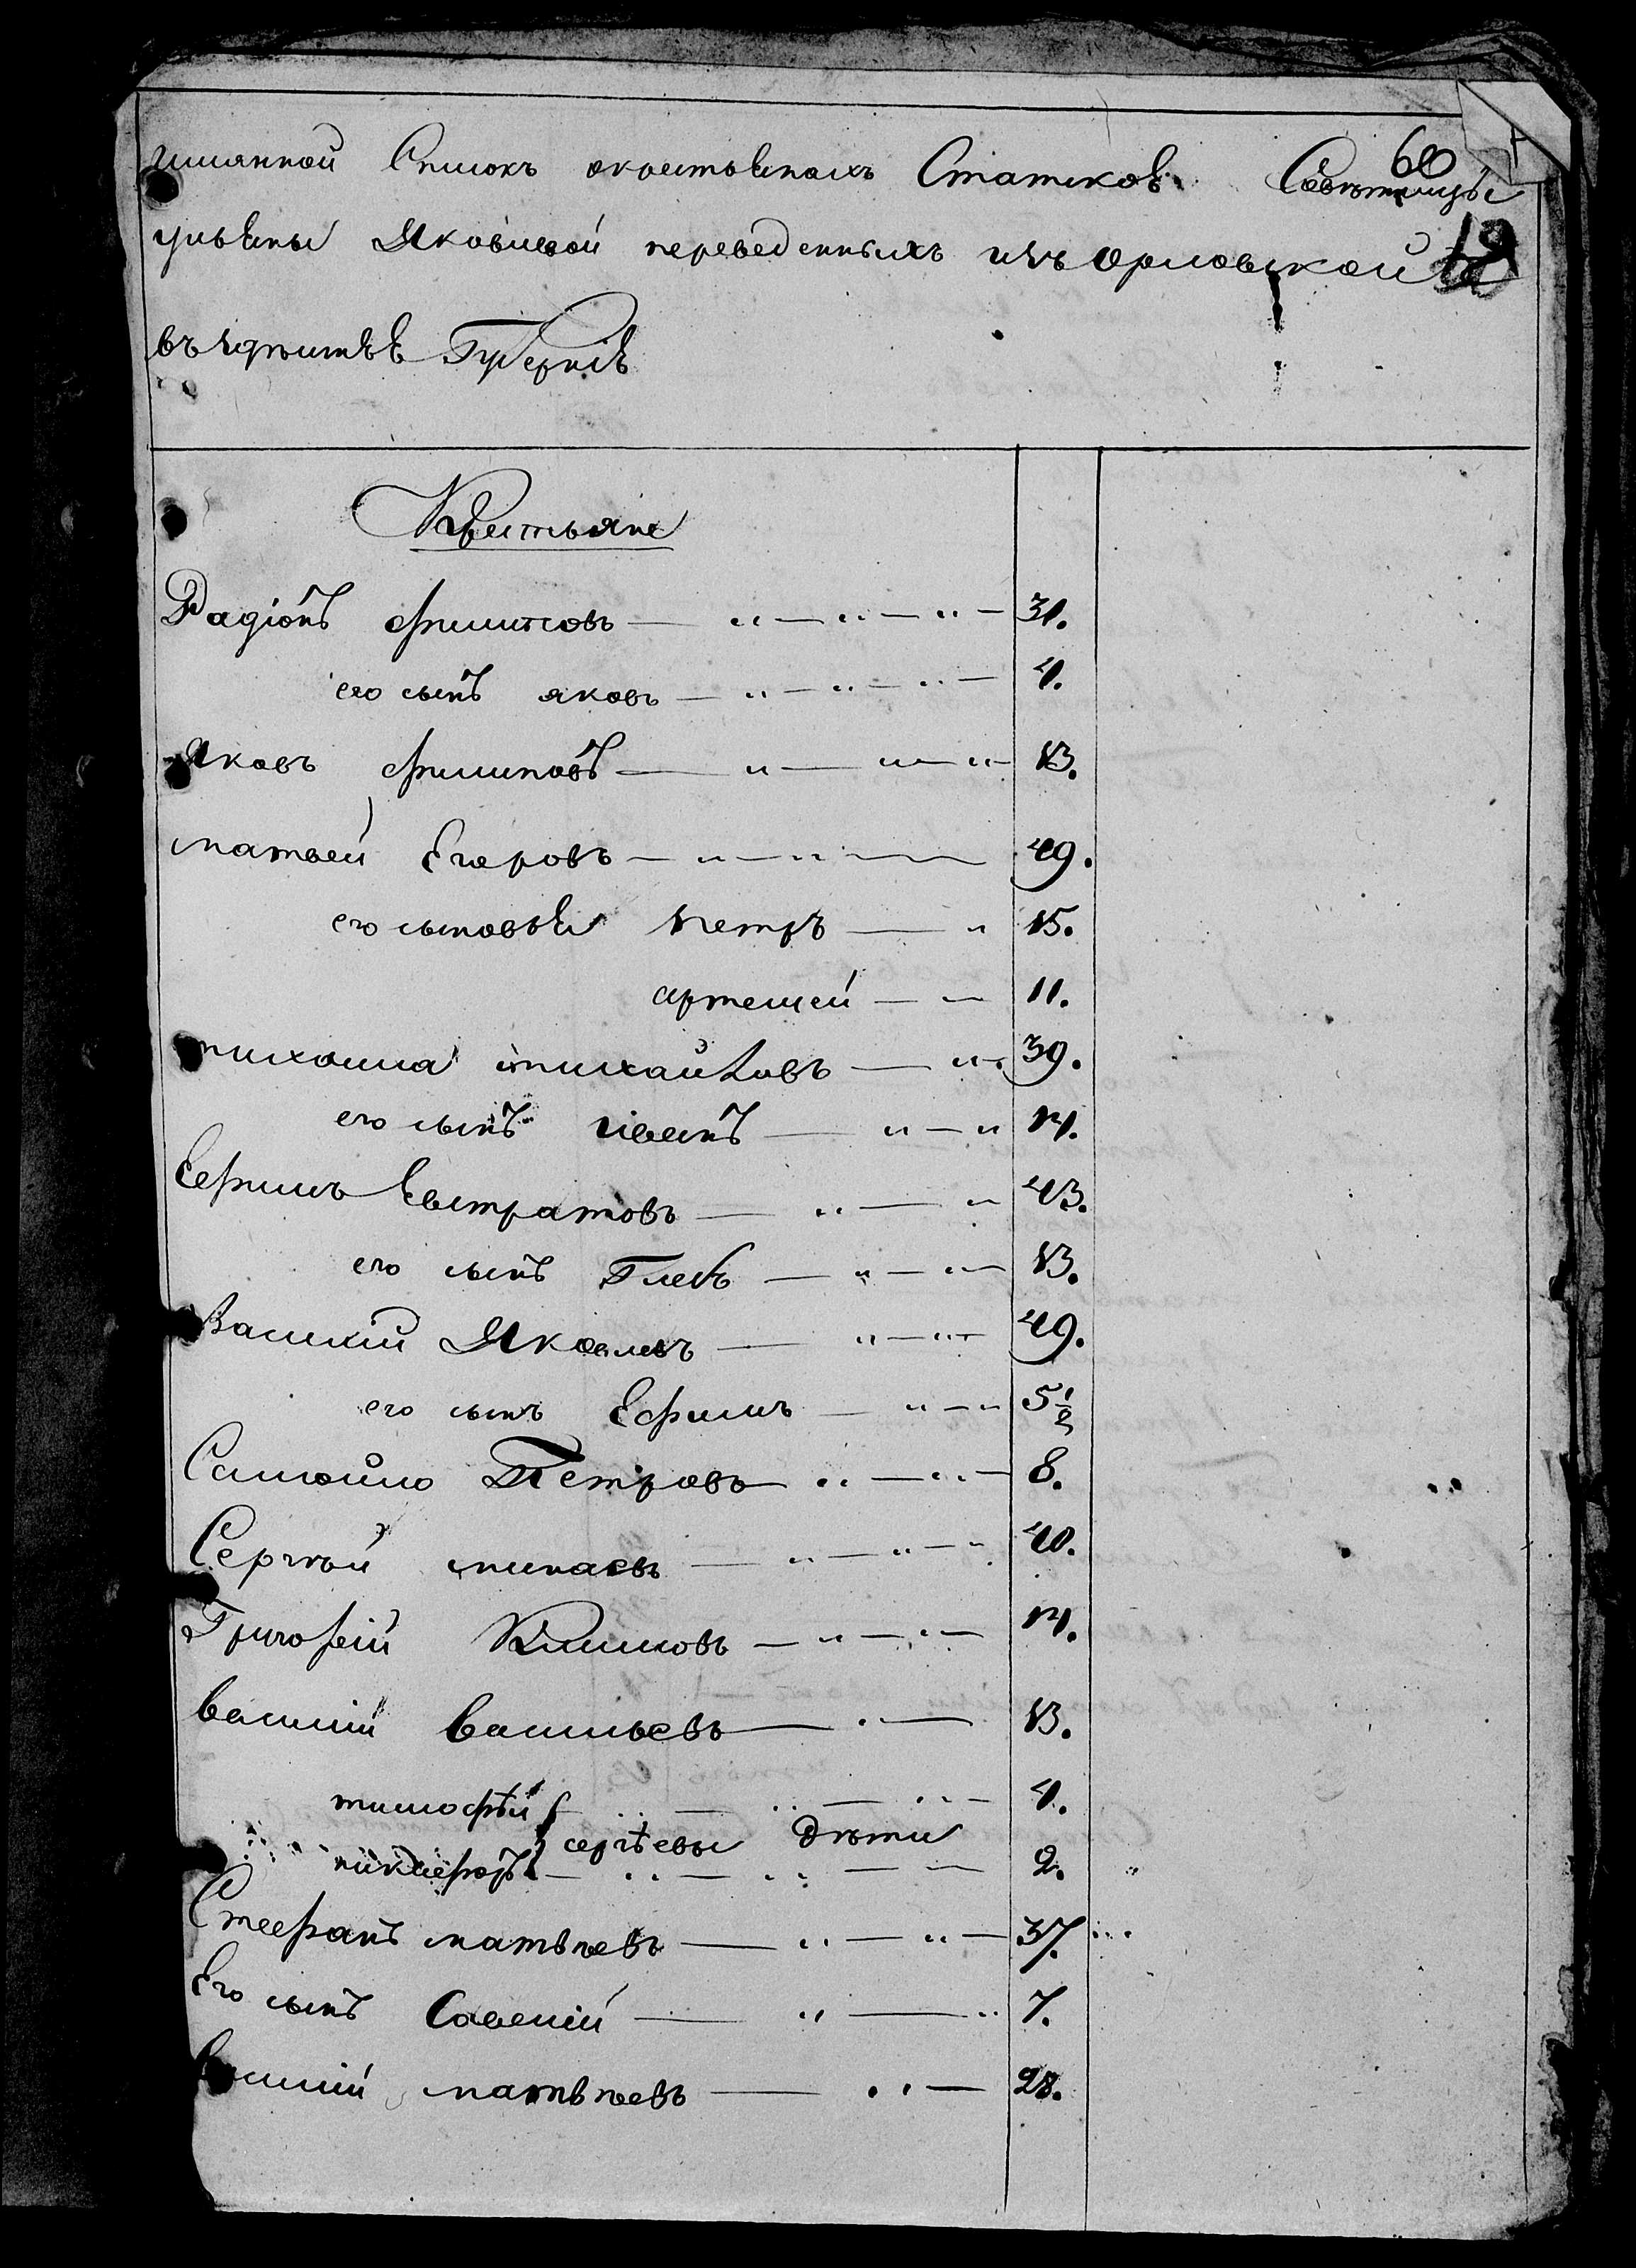 60
имянной Списокъ окрестьянахъ Статской Советницы
ульяны Яковлевой переведенныхъ изъ Орловской 12
Губерніи
Крестьяне
Радіонъ Филиповъ — „ — „ — „ — 31.
его сынъ яковъ — „ — „ — „ — 4.
Яковъ Филиповъ — „ — „ — „ 13.
матвей Егоровъ — „ — „ — 49.
его сыновья Петръ — „ 15.
артемей — „ 11.
михаила михайловъ — „ 39.
его сынъ иванъ — „ — „ 14.
Ефимъ Евстратовъ — „ — „ 43.
его сынъ Глебъ — „ — „ 13.
Василий Яковлевъ — „ — „ 49.
его сынъ Ефимъ — „ — „ 5 1/2
Самойло Петровъ — „ — „ — 8.
Сергѣй минаевъ — „ — „ — „ 40.
Григорей Климовъ — „ — „ — 14.
василий васильевъ — „ — 13.
тимофѣй — „ — „ — „ — 4.
сергѣевы дѣти
никифоръ — „ — „ — 2.
Стефанъ матвѣевъ — „ — „ — 37.
Его сынъ Савелий — „ — „ 7.
василий матвѣевъ — „ — 28.